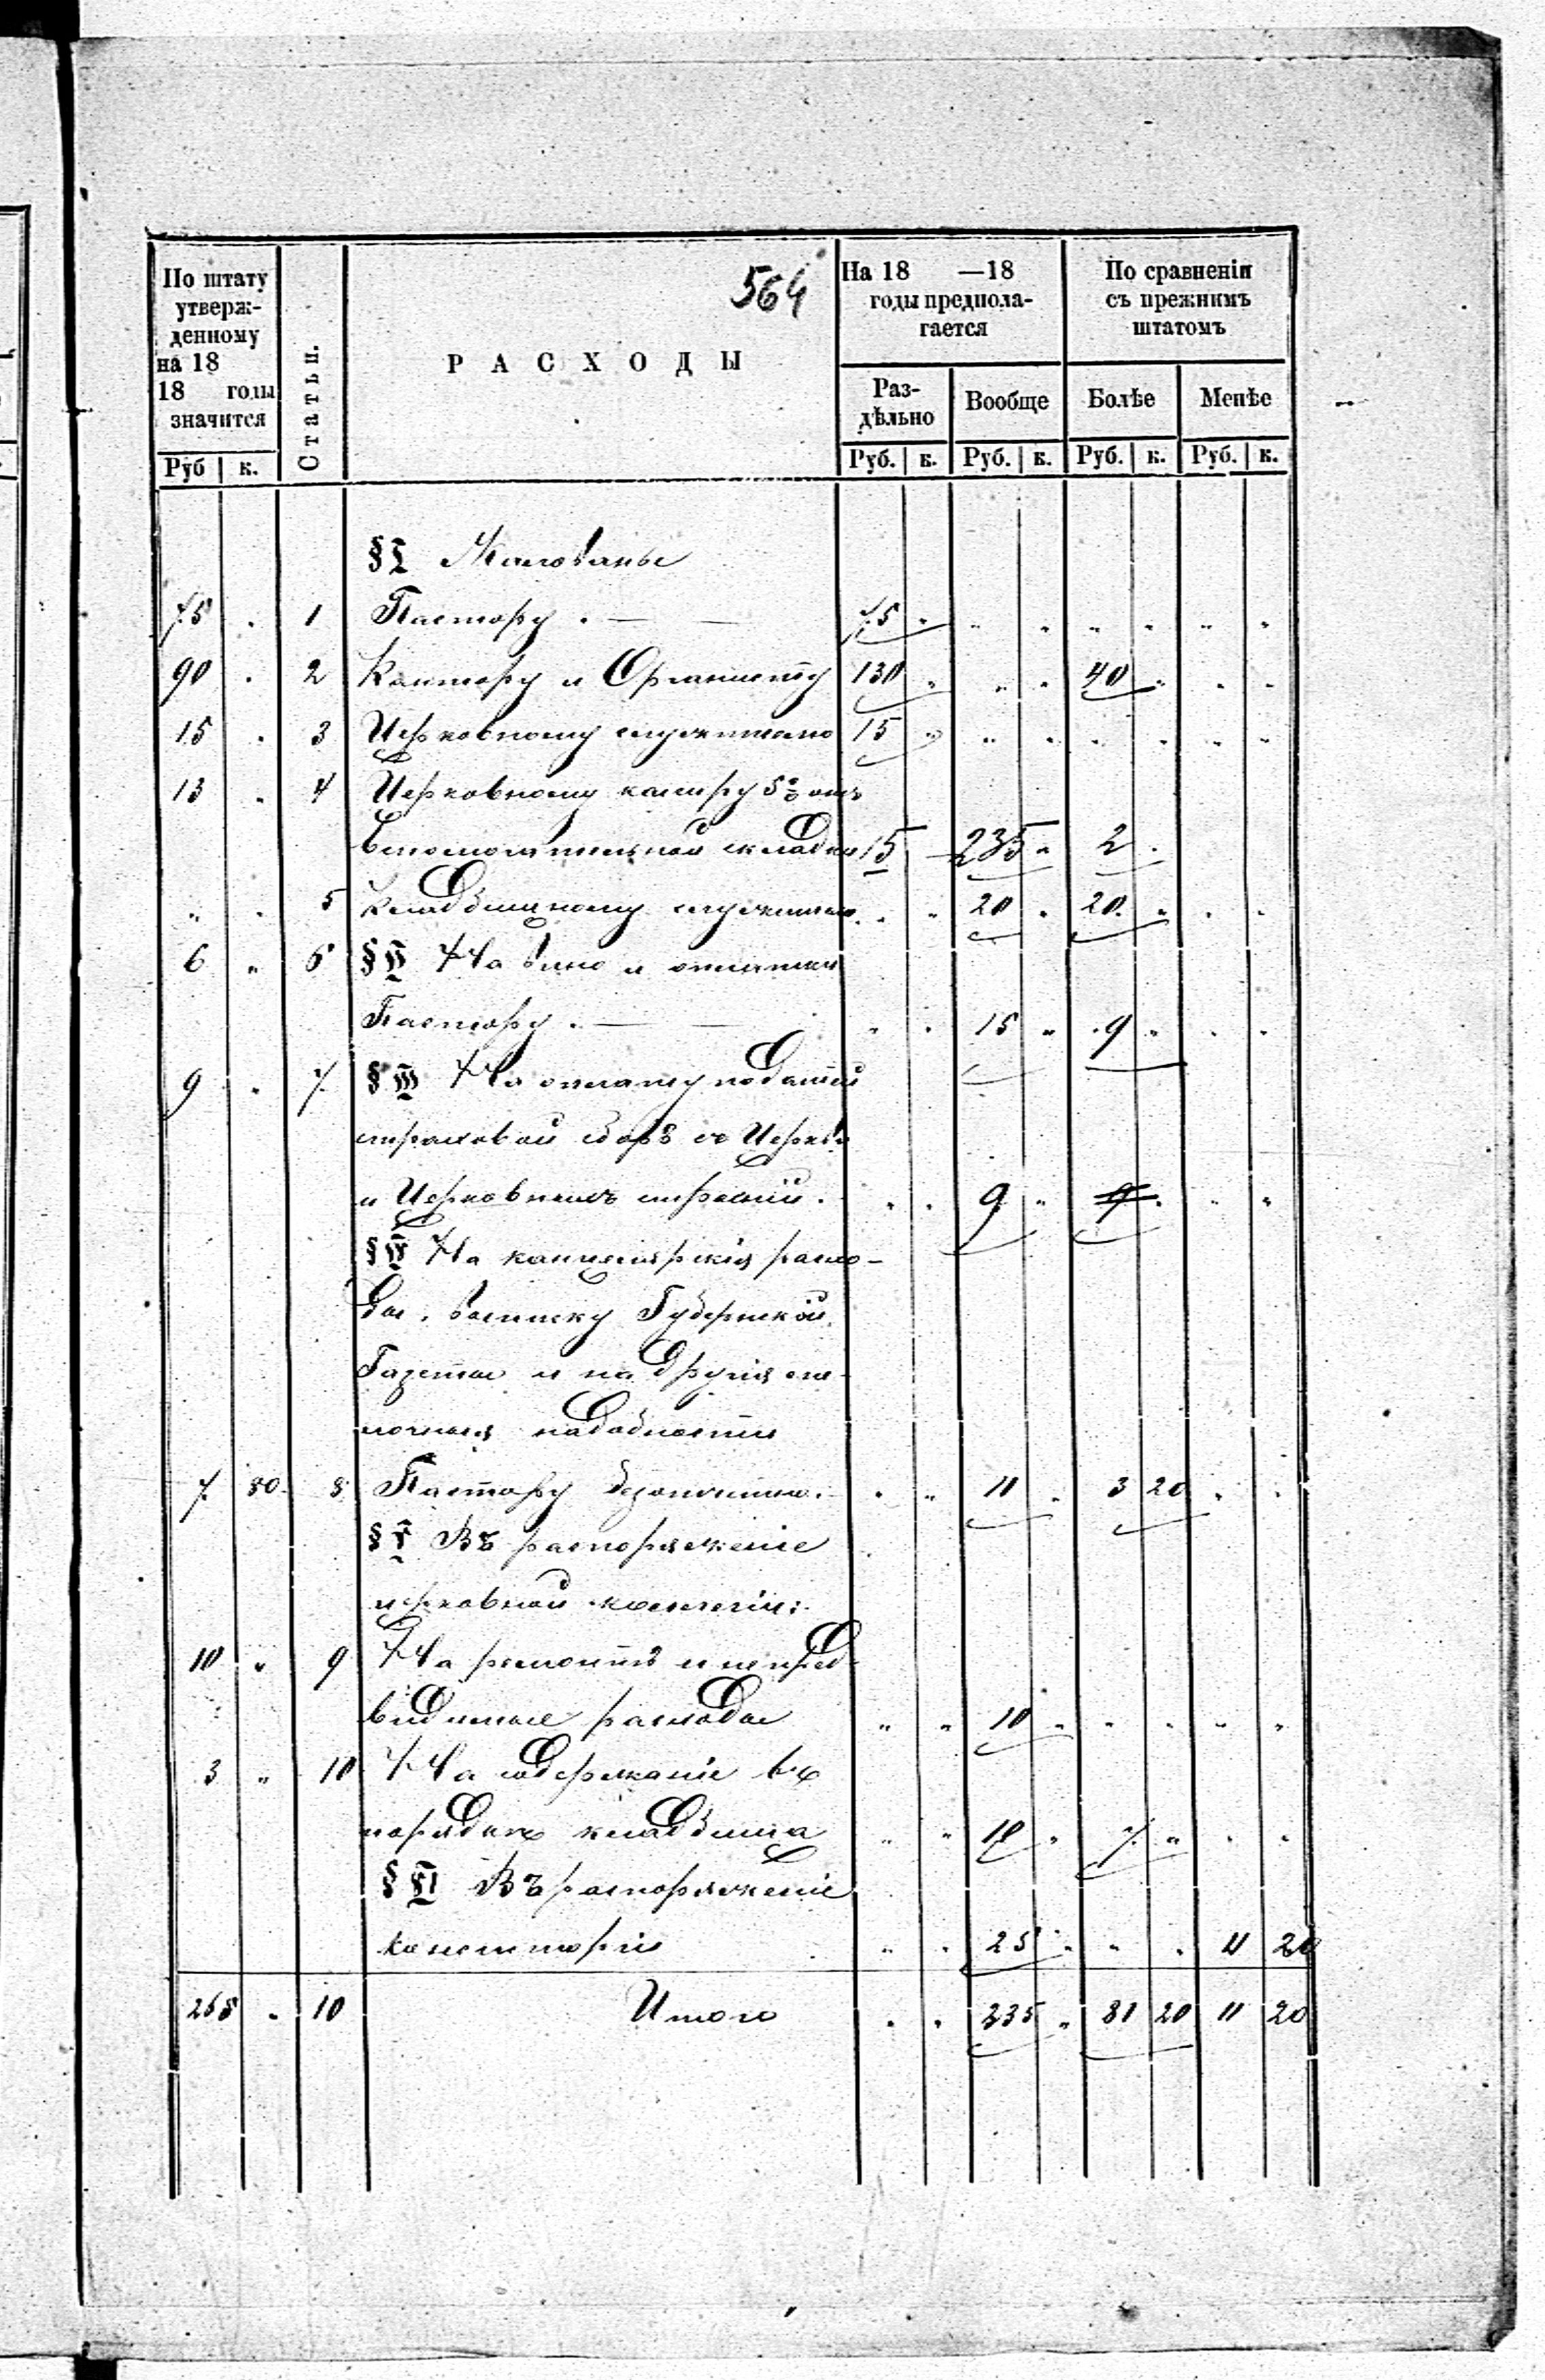 564
По штату утверж-денному на 18 18 годы значится | Статьи. | РАСХОДЫ | На 18 —18 годы предпола-гается | По сравненію съ прежнимъ штатомъ
Раз-дѣльно | Вообще | Болѣе | Менѣе
Руб | к. | Руб. | к. | Руб. | к. | Руб. | к. | Руб. | к.
§ I Жалованье
75 " 1 Пастору . — — 75 " " " " " " "
90 " 2 Кантору и Органисту 130 " " " 40 " " "
15 " 3 Церковному служителю 15 " " " " " " "
13 " 4 Церковному кассиру 5% отъ
вспомогательной складки 15 — 235 " 2 "
" " 5 Кладбищному служителю " " 20 " 20 " " "
6 " 6 § II На вино и
Пастору . — — " " 15 " 9 " " "
9 " 7 § III На оплату податей
страховой сборъ съ Церкви
и Церковныхъ строеній . " " 9 " " " "
§ IV На канцелярскія расхо-
ды, выписку Губернской
Газеты и на другія
надобности
7 80 8 Пастору безотчетно. " " 11 " 3 20 " "
§ V Въ распоряженіе
церковной коллегіи:
10 " 9 На ремонтъ и непред-
видимые расходы " " 10 " " " " "
3 " 10 На содержаніе въ
порядкѣ кладбища " " 10 " 7 " " "
§ VI Въ распоряженіе
Консисторіи " " 25 " " " 11 20
268 " 10 Итого " " 335 " 81 20 11 20